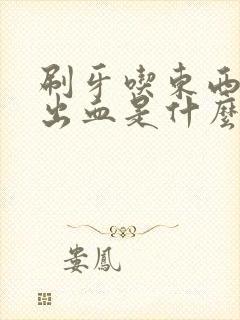 刷牙喫東西
出血是什麼
婁鳳